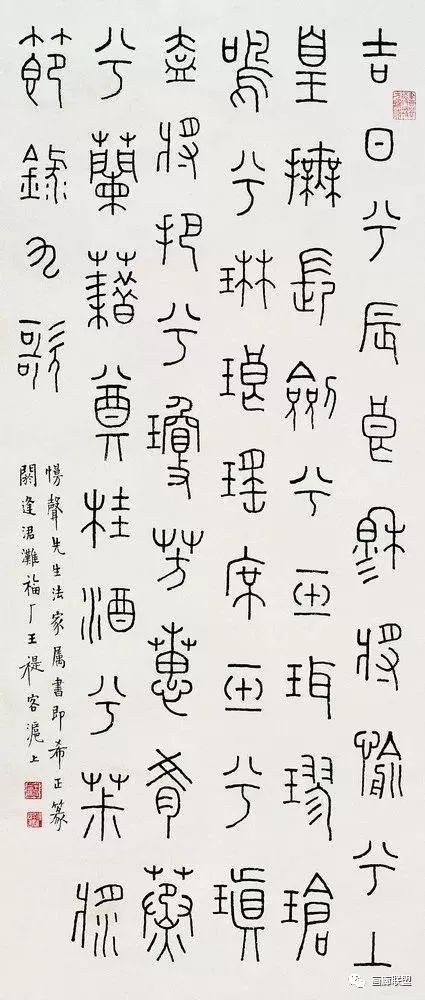 吉日兮辰良穆將愉兮上
皇撫長劍兮玉珥璆瑲
鳴兮琳琅瑤席玉兮瑱
盍將把兮瓊芳蕙肴蒸
兮蘭藉奠桂酒兮茮漿
節錄九歌
聲先生法家属書即希正篆
閼逢涒灘福厂王禔客滬上
画廊联盟